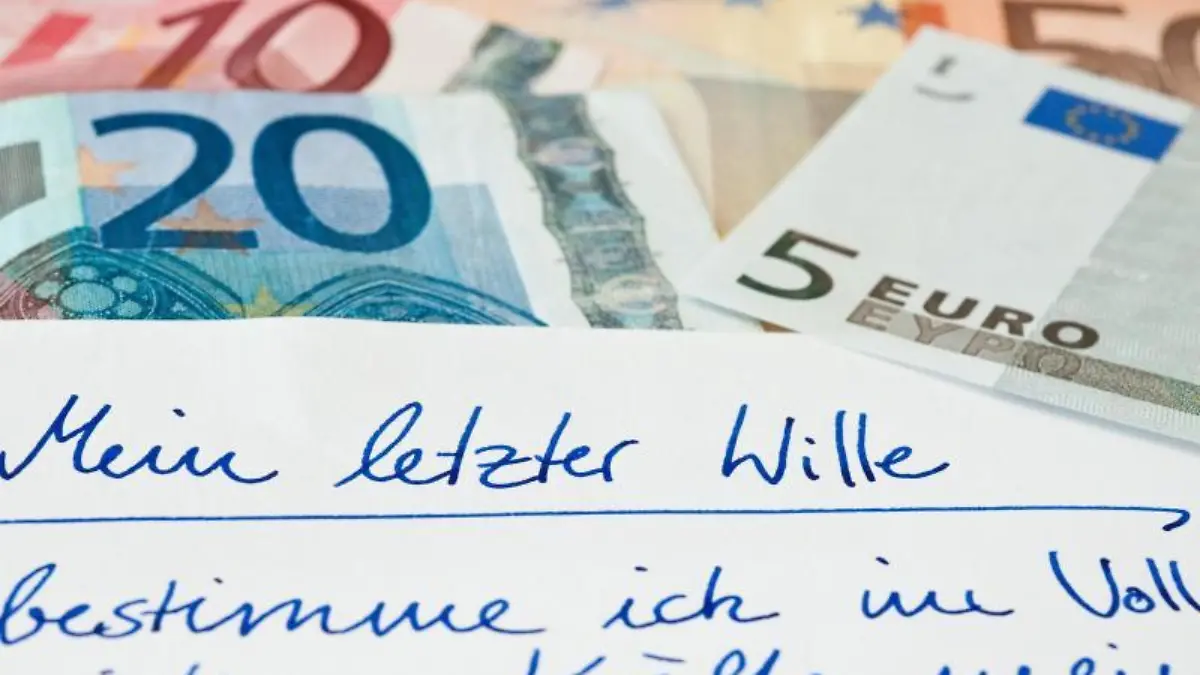 10
50
20
5 EURO
ΕΥΡΩ
Mein letzter Wille
bestimme ich im